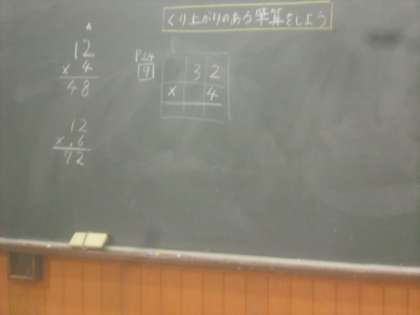 くり上がりのある筆算をしよう
12
× 4
48
12
× 6
72
P24
9
32
× 4